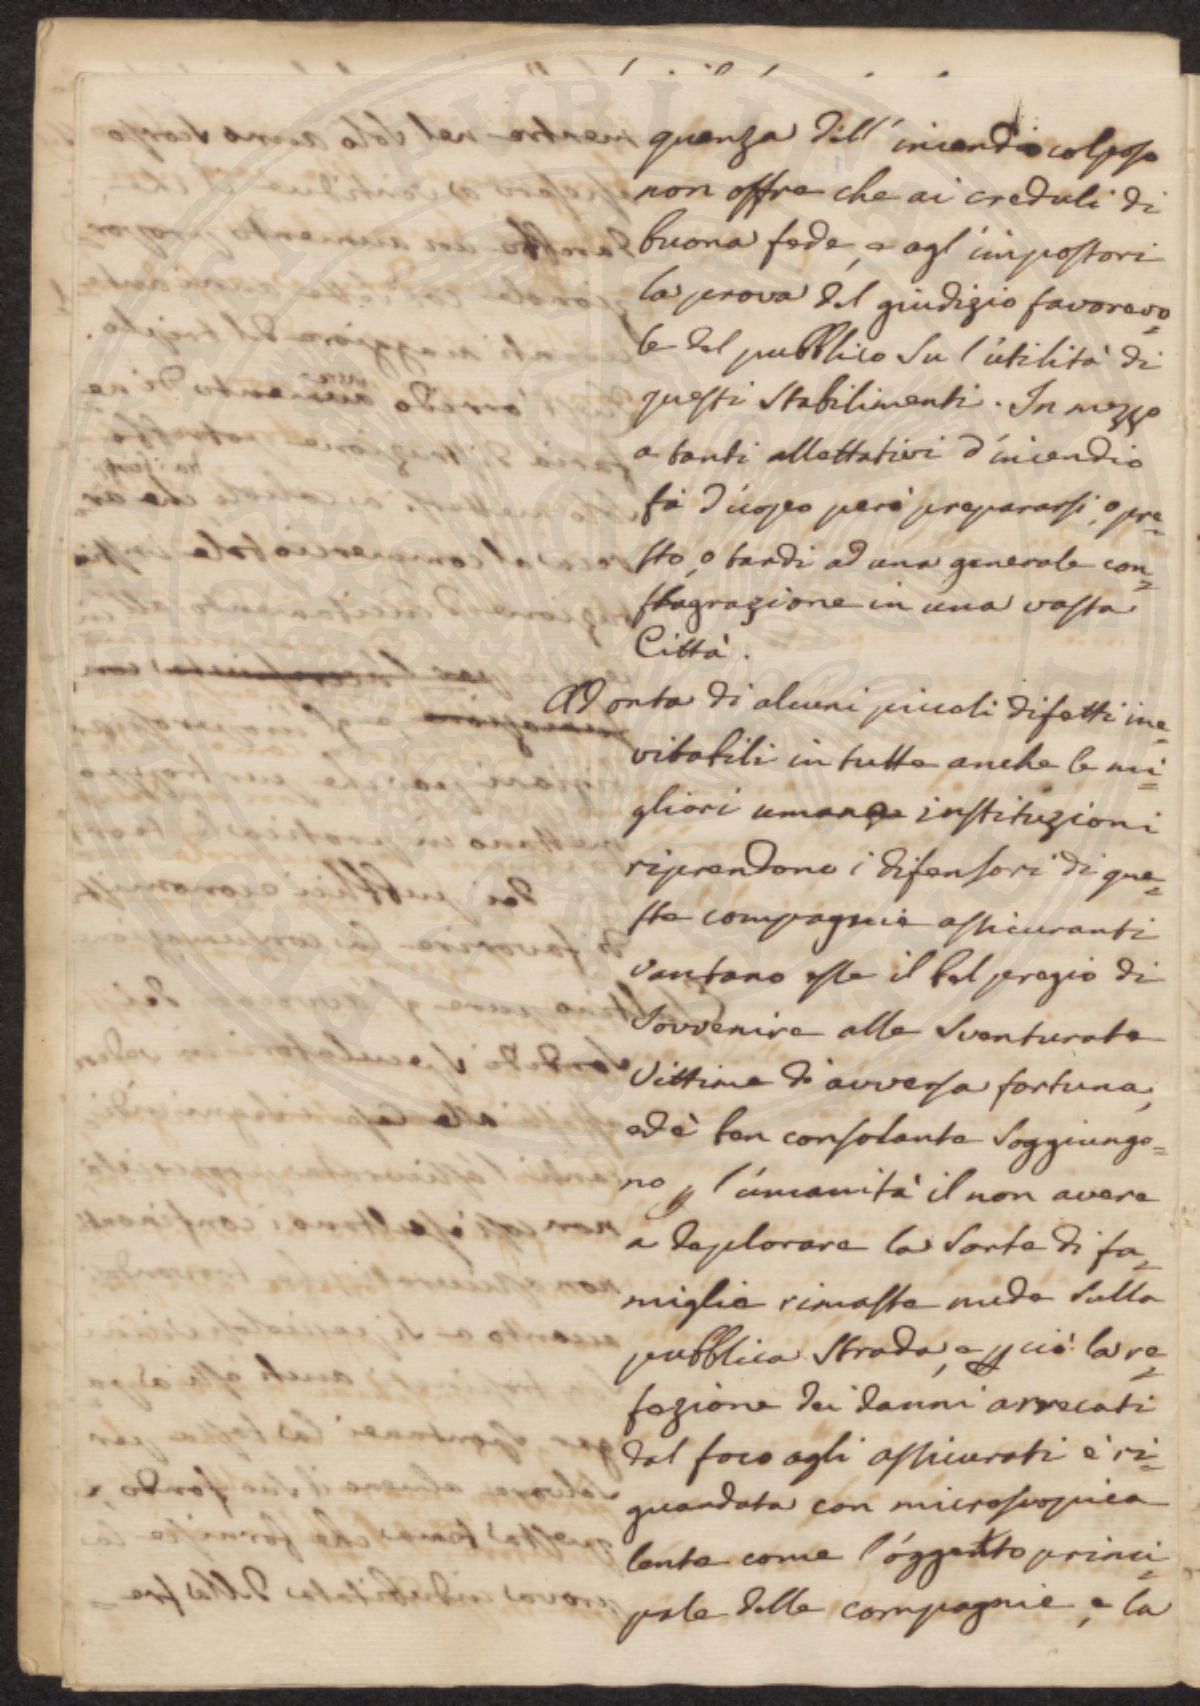 quenza dell' incendio colposo
non offre che ai creduli di
buona fede, e agl' impostori
la prova del giudizio favorevo=
le del pubblico su l'utilità di
questi stabilimenti. In mezzo
a tanti allettativi d'incendio
fà d'uopo però prepararsi, o pre=
sto, o tardi ad una generale con=
flagrazione in una vasta
Città.
Ad onta di alcuni piccoli difetti ine=
vitabili in tutte anche le mi=
gliori umane instituzioni
riprendono i difensori di que=
ste compagnie assicuranti
vantano esse il bel pregio di
sovvenire alle sventurate
vittime d'avversa fortuna,
ed è ben consolante soggiungo=
no p l'umanità il non avere
a deplorare la sorte di fa=
miglie rimaste nude sulla
pubblica strada, e p ciò la re=
fazione dei danni arrecati
dal foco agli assicurati è ri=
guardata con microscopica
lente come l'oggetto princi=
pale delle compagnie, e la